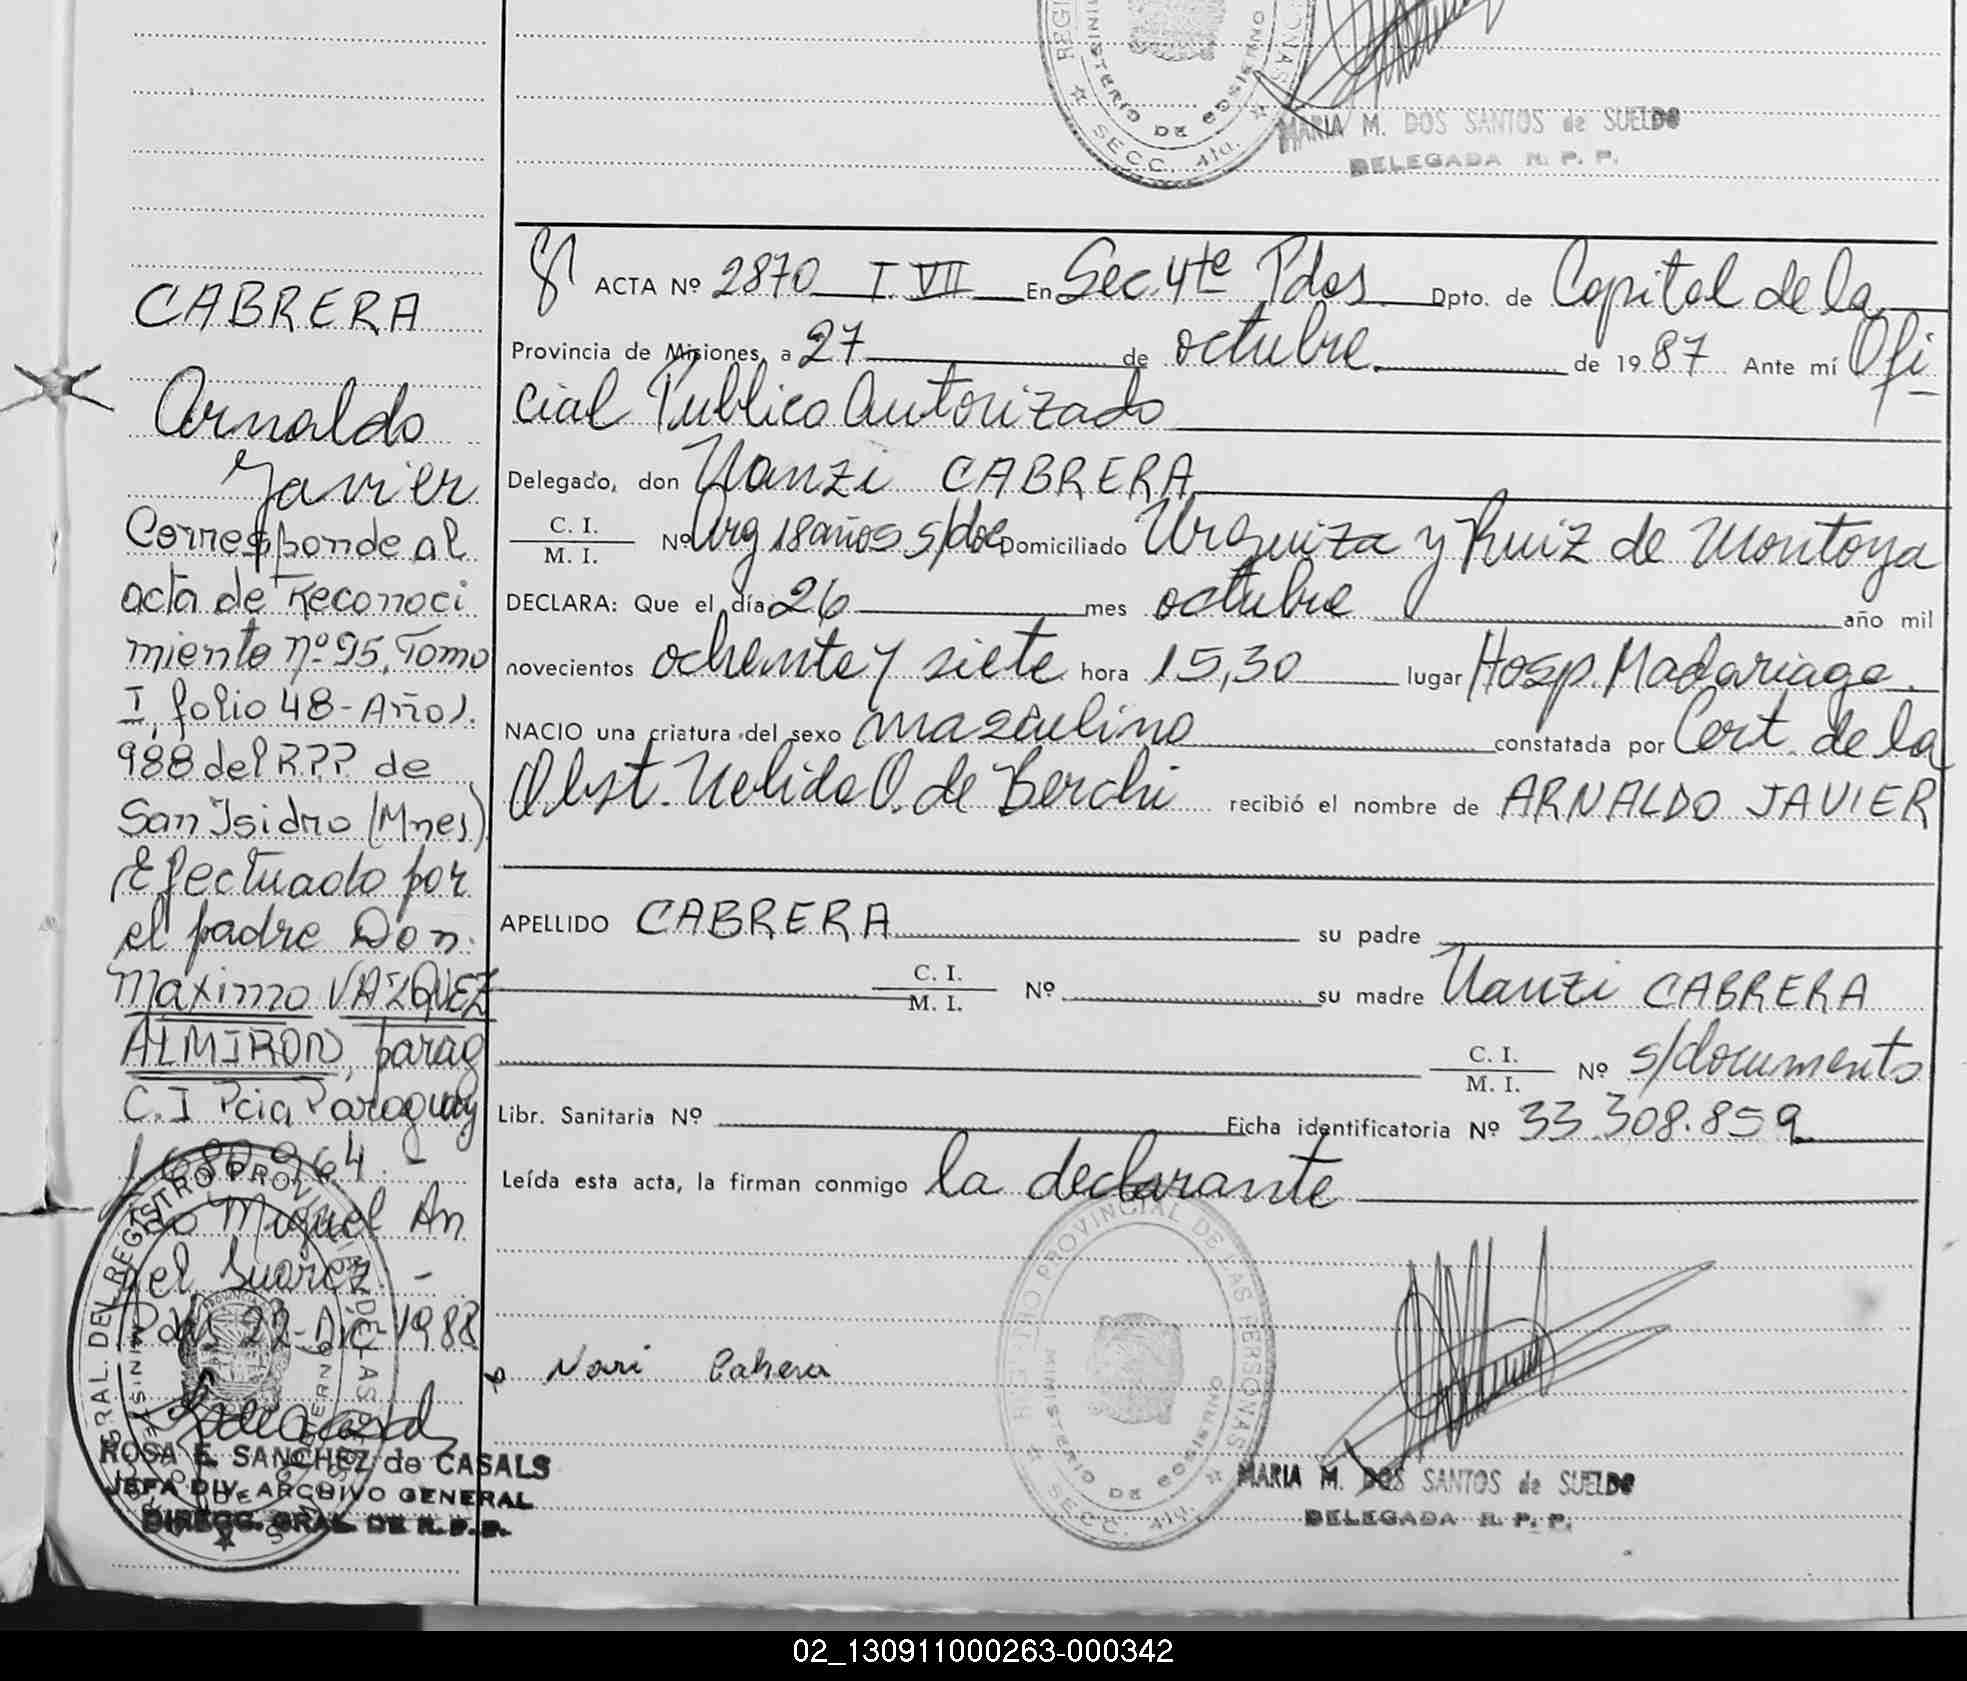 MINISTERIO DE GOBIERNO
SECC. 4ta.
MARIA M. DOS SANTOS de SUELDO
DELEGADA R. P. P.
CABRERA
Arnaldo
Javier
Corresponde al
acta de Reconoci
miento nº 95, Tomo
I, folio 48 - Año 1.
988 del RPP de
San Isidro (Mnes)
Efectuado por
el padre Don.
Maximo VAZQUEZ
ALMIRON, parag
C.I Pcia Paraguay
1.680.964. -
Miguel An
gel Suarez. -
Pdas 22-Dic-1988
ROSA E. SANCHEZ de CASALS
JEFA DIV. ARCHIVO GENERAL
DIRECC. GRAL. DE R. P. P.
ACTA Nº 2870 T. VII En Sec. 4te Pdas Dpto. de Capital de la
Provincia de Misiones, a 27 de octubre. de 1987 Ante mí Ofi-
cial Publico Autorizado
Delegado, don Nanzi CABRERA
C. I.
M. I. Nº Arg 18 años s/doc Domiciliado Urquiza y Ruiz de Montoya
DECLARA: Que el día 26 mes octubre año mil
novecientos ochenta y siete hora 15,30 lugar Hosp. Madariaga.
NACIO una criatura del sexo masculino constatada por Cert. de la
Obst. Nelida O. de Berchi recibió el nombre de ARNALDO JAVIER
APELLIDO CABRERA su padre
C. I.
M. I. Nº su madre Nanzi CABRERA
C. I.
M. I. Nº s/documento
Libr. Sanitaria Nº Ficha identificatoria Nº 33.308.859
Leída esta acta, la firman conmigo la declarante
REGISTRO PROVINCIAL DE LAS PERSONAS
MINISTERIO DE GOBIERNO
SECC. 4ta.
Nari Cabrera
MARIA M. DOS SANTOS de SUELDO
DELEGADA R. P. P.
02_130911000263-000342